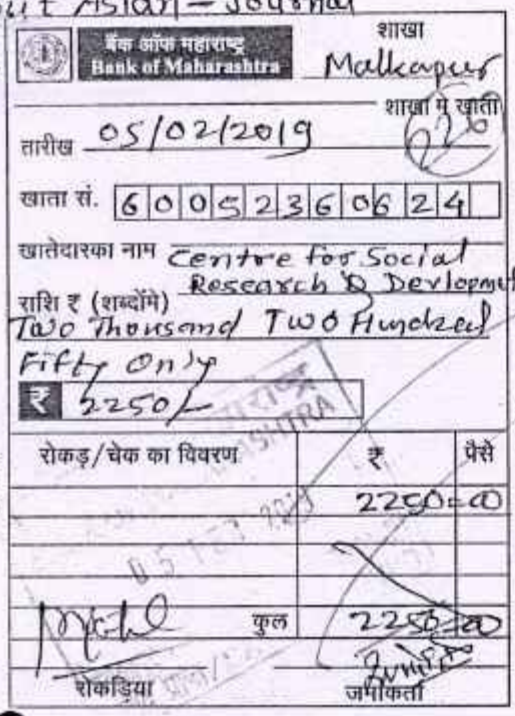 Asian - Journal
बैंक ऑफ महाराष्ट्र
Bank of Maharashtra
शाखा
Malkapur
शाखा में खाती
तारीख 05/02/2019
खाता सं. 60052360624
खातेदारका नाम Centre for Social
Research & Devlopmet
राशि ₹ (शब्दोंमे)
Two Thousand Two Hundred
Fifty Only
₹ 2250/-
रोकड़/चेक का विवरण ₹ पैसे
2250=00
कुल 2250=00
रोकड़िया जमाकर्ता